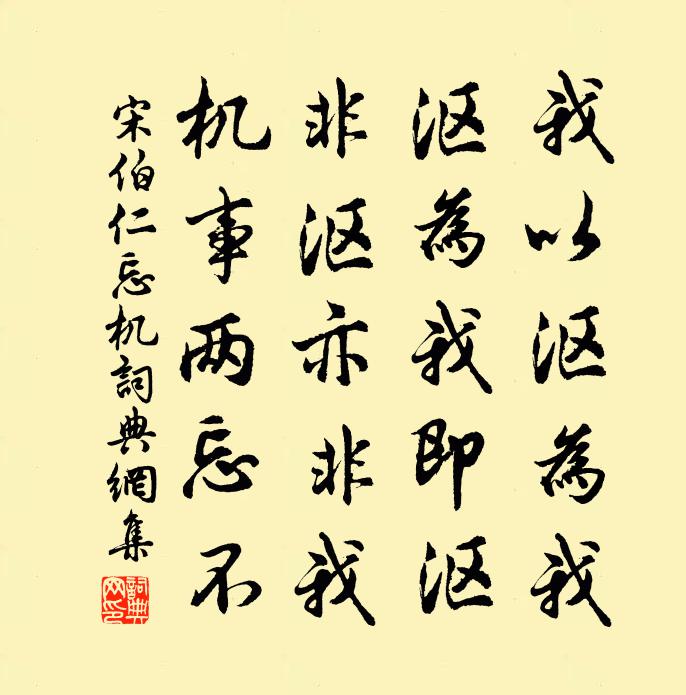 我以沤為我
沤為我即沤
非沤亦非我
机事两忘不
宋伯仁忘机詞典網集
詞典网印